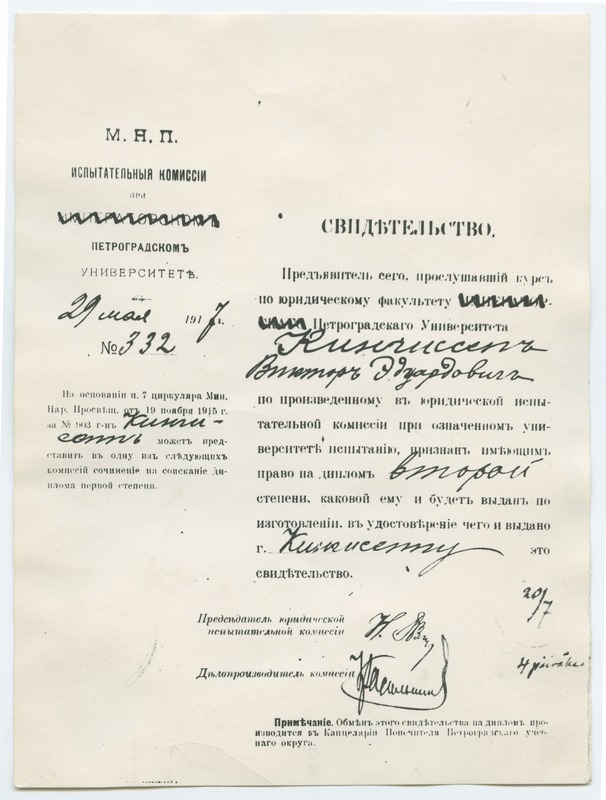 М. Н. П.
ИСПЫТАТЕЛЬНЫЯ КОМИССІИ
ПРИ
ПЕТРОГРАДСКОМЪ
УНИВЕРСИТЕТѢ.
29 мая 1917 г.
№ 332
На основаніи п. 7 циркуляра Мин.
Нар. Просвѣщ. отъ 19 ноября 1915 г.
за № 903 г-нъ
можетъ пред-
ставить въ одну изъ слѣдующихъ
комиссій сочиненіе на соисканіе ди-
плома первой степени.
СВИДѢТЕЛЬСТВО.
Предъявитель сего, прослушавшій курсъ
по юридическому факультету
Петроградскаго Университета
Викторъ Эдуардовичъ
по произведенному въ юридической испы-
тательной комиссіи при означенномъ уни-
верситетѣ испытанію, признанъ имѣющимъ
право на дипломъ второй
степени, каковой ему и будетъ выданъ по
изготовленіи, въ удостовѣреніе чего и выдано
г. это
свидѣтельство.
20/7
Предсѣдатель юридической
испытательной комиссіи
Дѣлопроизводитель комиссіи
4 päiväks
Примѣчаніе. Обмѣнъ этого свидѣтельства на дипломъ про-
изводится въ Канцеляріи Попечителя Петроградскаго учеб-
наго округа.